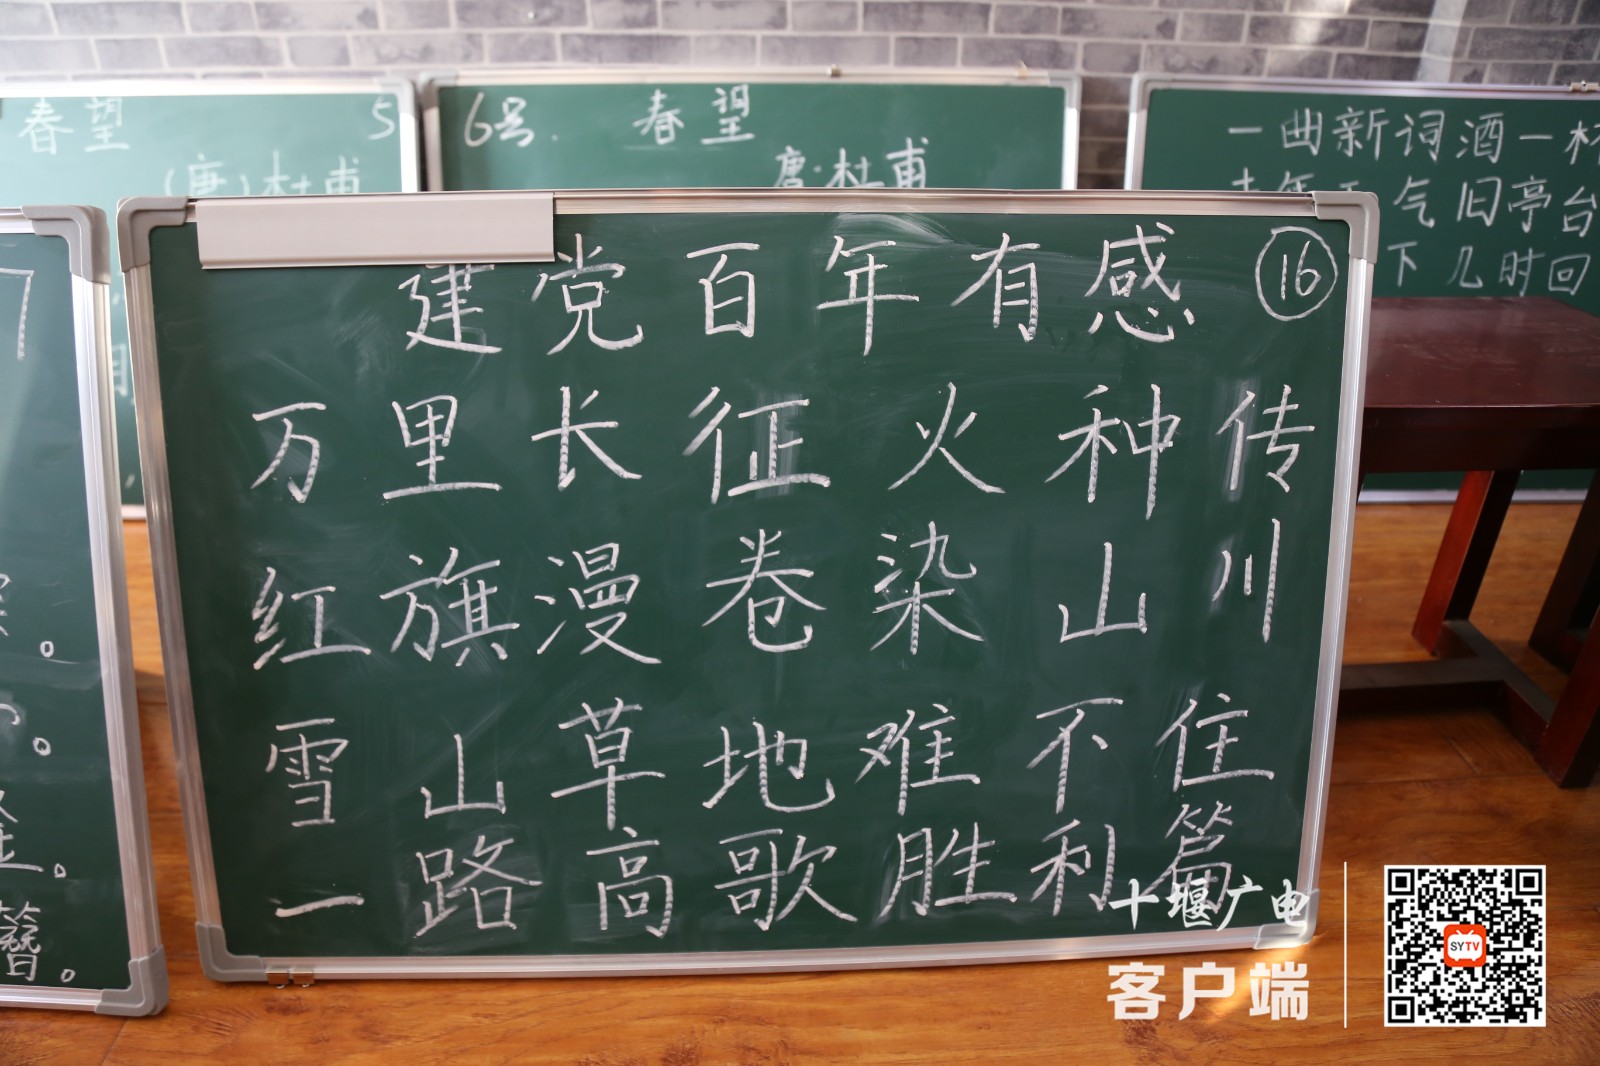 春望 5
(唐)杜甫
6号. 春望
唐·杜甫
一曲新词酒一杯
气旧亭台
下几时回
建党百年有感 16
万里长征火种传
红旗漫卷染山川
雪山草地难不住
一路高歌胜利篇
十堰广电
客户端
SYTV